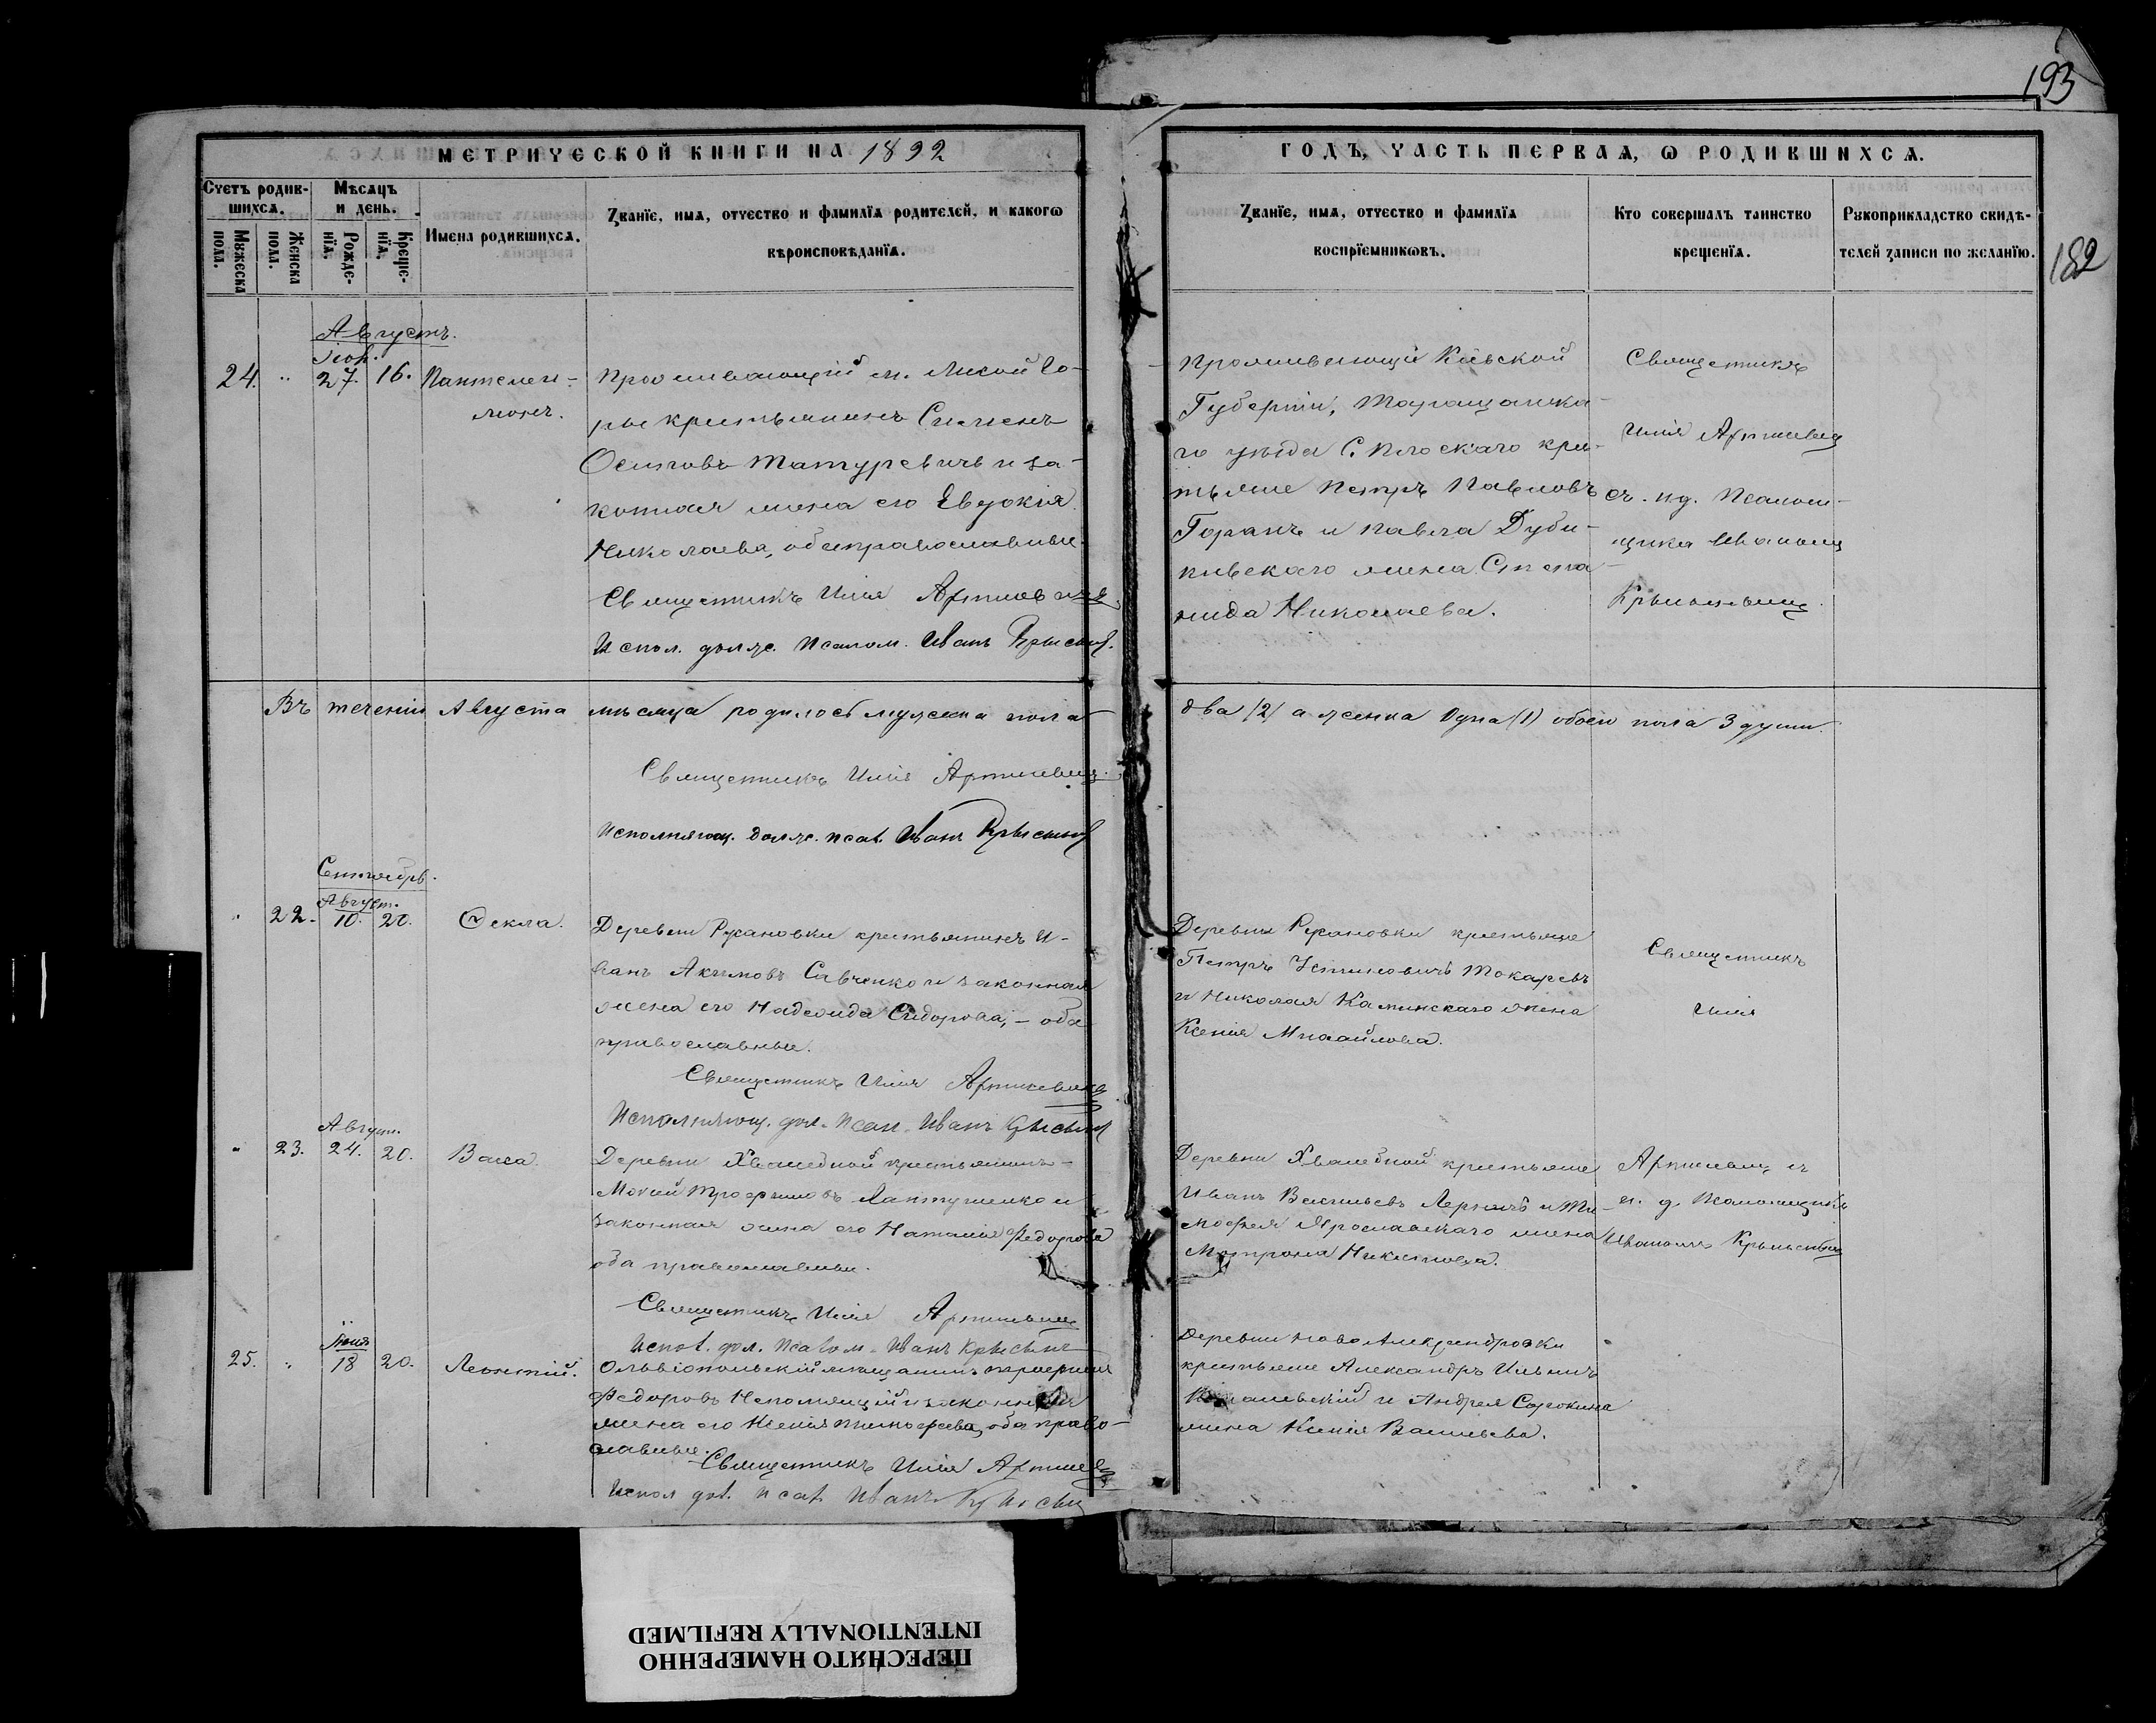 193
182
МЕТРИЧЕСКОЙ КНИГИ НА 1892
ГОДЪ, ЧАСТЬ ПЕРВАѦ, Ѡ РОДИВШИХСѦ.
Счетъ родив-
шихсѧ.
Мѣсѧцъ
и день.
Мꙋжеска
пола.
Женска
пола.
Рожде-
нїѧ.
Креще-
нїѧ.
Имена родившихсѧ.
Званїе, имѧ, отчество и фамилїѧ родителей, и какогѡ
вѣроисповѣданїѧ.
Званїе, имѧ, отчество и фамилїѧ
воспрїемникѡвъ.
Кто совершалъ таинство
крещенїѧ.
Рꙋкоприкладство свидѣ-
телей записи по желанїю.
Августъ.
24. " 27. 16. Пантелеи-
монъ.
Проживающій м. Лысой Го-
ры крестьянинъ Симеонъ
Осиповъ Татуревичъ и за-
конная жена его Евдокія
Николаева, оба православные.
Священникъ Илія Артиневичъ
Испол. долж. Псалом. Иванъ
Проживающіе Кіевской
Губерніи, Таращанска-
го уѣзда С. Плоскаго крес-
тьяне Петръ Павловъ
Горанъ и Павла Дуби-
нивскаго жена Степа-
нида Николаева.
Священникъ
Илія
съ и. д. Псалом-
щика Иваномъ
Въ теченіи Августа мѣсяца родилось мужска пола
два (2) а женска одна (1) обоего пола 3 души.
Священникъ Илія
Исполняющ. долж. псал. Иванъ
Сентябрь.
Август.
" 22. 10. 20. Ѳекла.
Деревни Ружановки крестьянинъ И-
ванъ Акимовъ Савченко и законная
жена его Надежда Сидорова, - оба
православные.
Священникъ Илія
Исполняющ. дол. Псал. Иванъ
Деревни Ружановки крестьяне
Петръ Устиновичъ Токаревъ
и Николая Каминскаго жена
Ксенія Михайлова.
Священникъ
Илія
Август.
" 23. 24. 20. Васса.
Деревни Хвалебной крестьянинъ
Мокий Трофимовъ Лактушенко и
законная жена его Наталія Федорова
оба православные.
Священникъ Илія
Испол. дол. Псалом. Иванъ
Деревни Хвалебной крестьяне
Иванъ Васильевъ и Ти-
мофея Ярославскаго жена
Матрона Никитова.
съ
и. д. Псаломщика
Иваномъ
Іюня
25. " 18 20. Леонтій.
Ольвіопольскій мѣщанинъ Трофимъ
Федоровъ Непомнящій и законная
жена его Ксенія Тимофеева, оба право-
славные.
Священникъ Илія
Испол дол. Псал. Иванъ
Деревни Ново Александровки
крестьяне Александръ Ильинъ
и Андрея Сорокина
жена Ксенія Васильева.
ПЕРЕСНЯТО НАМЕРЕННО
INTENTIONALLY REFILMED